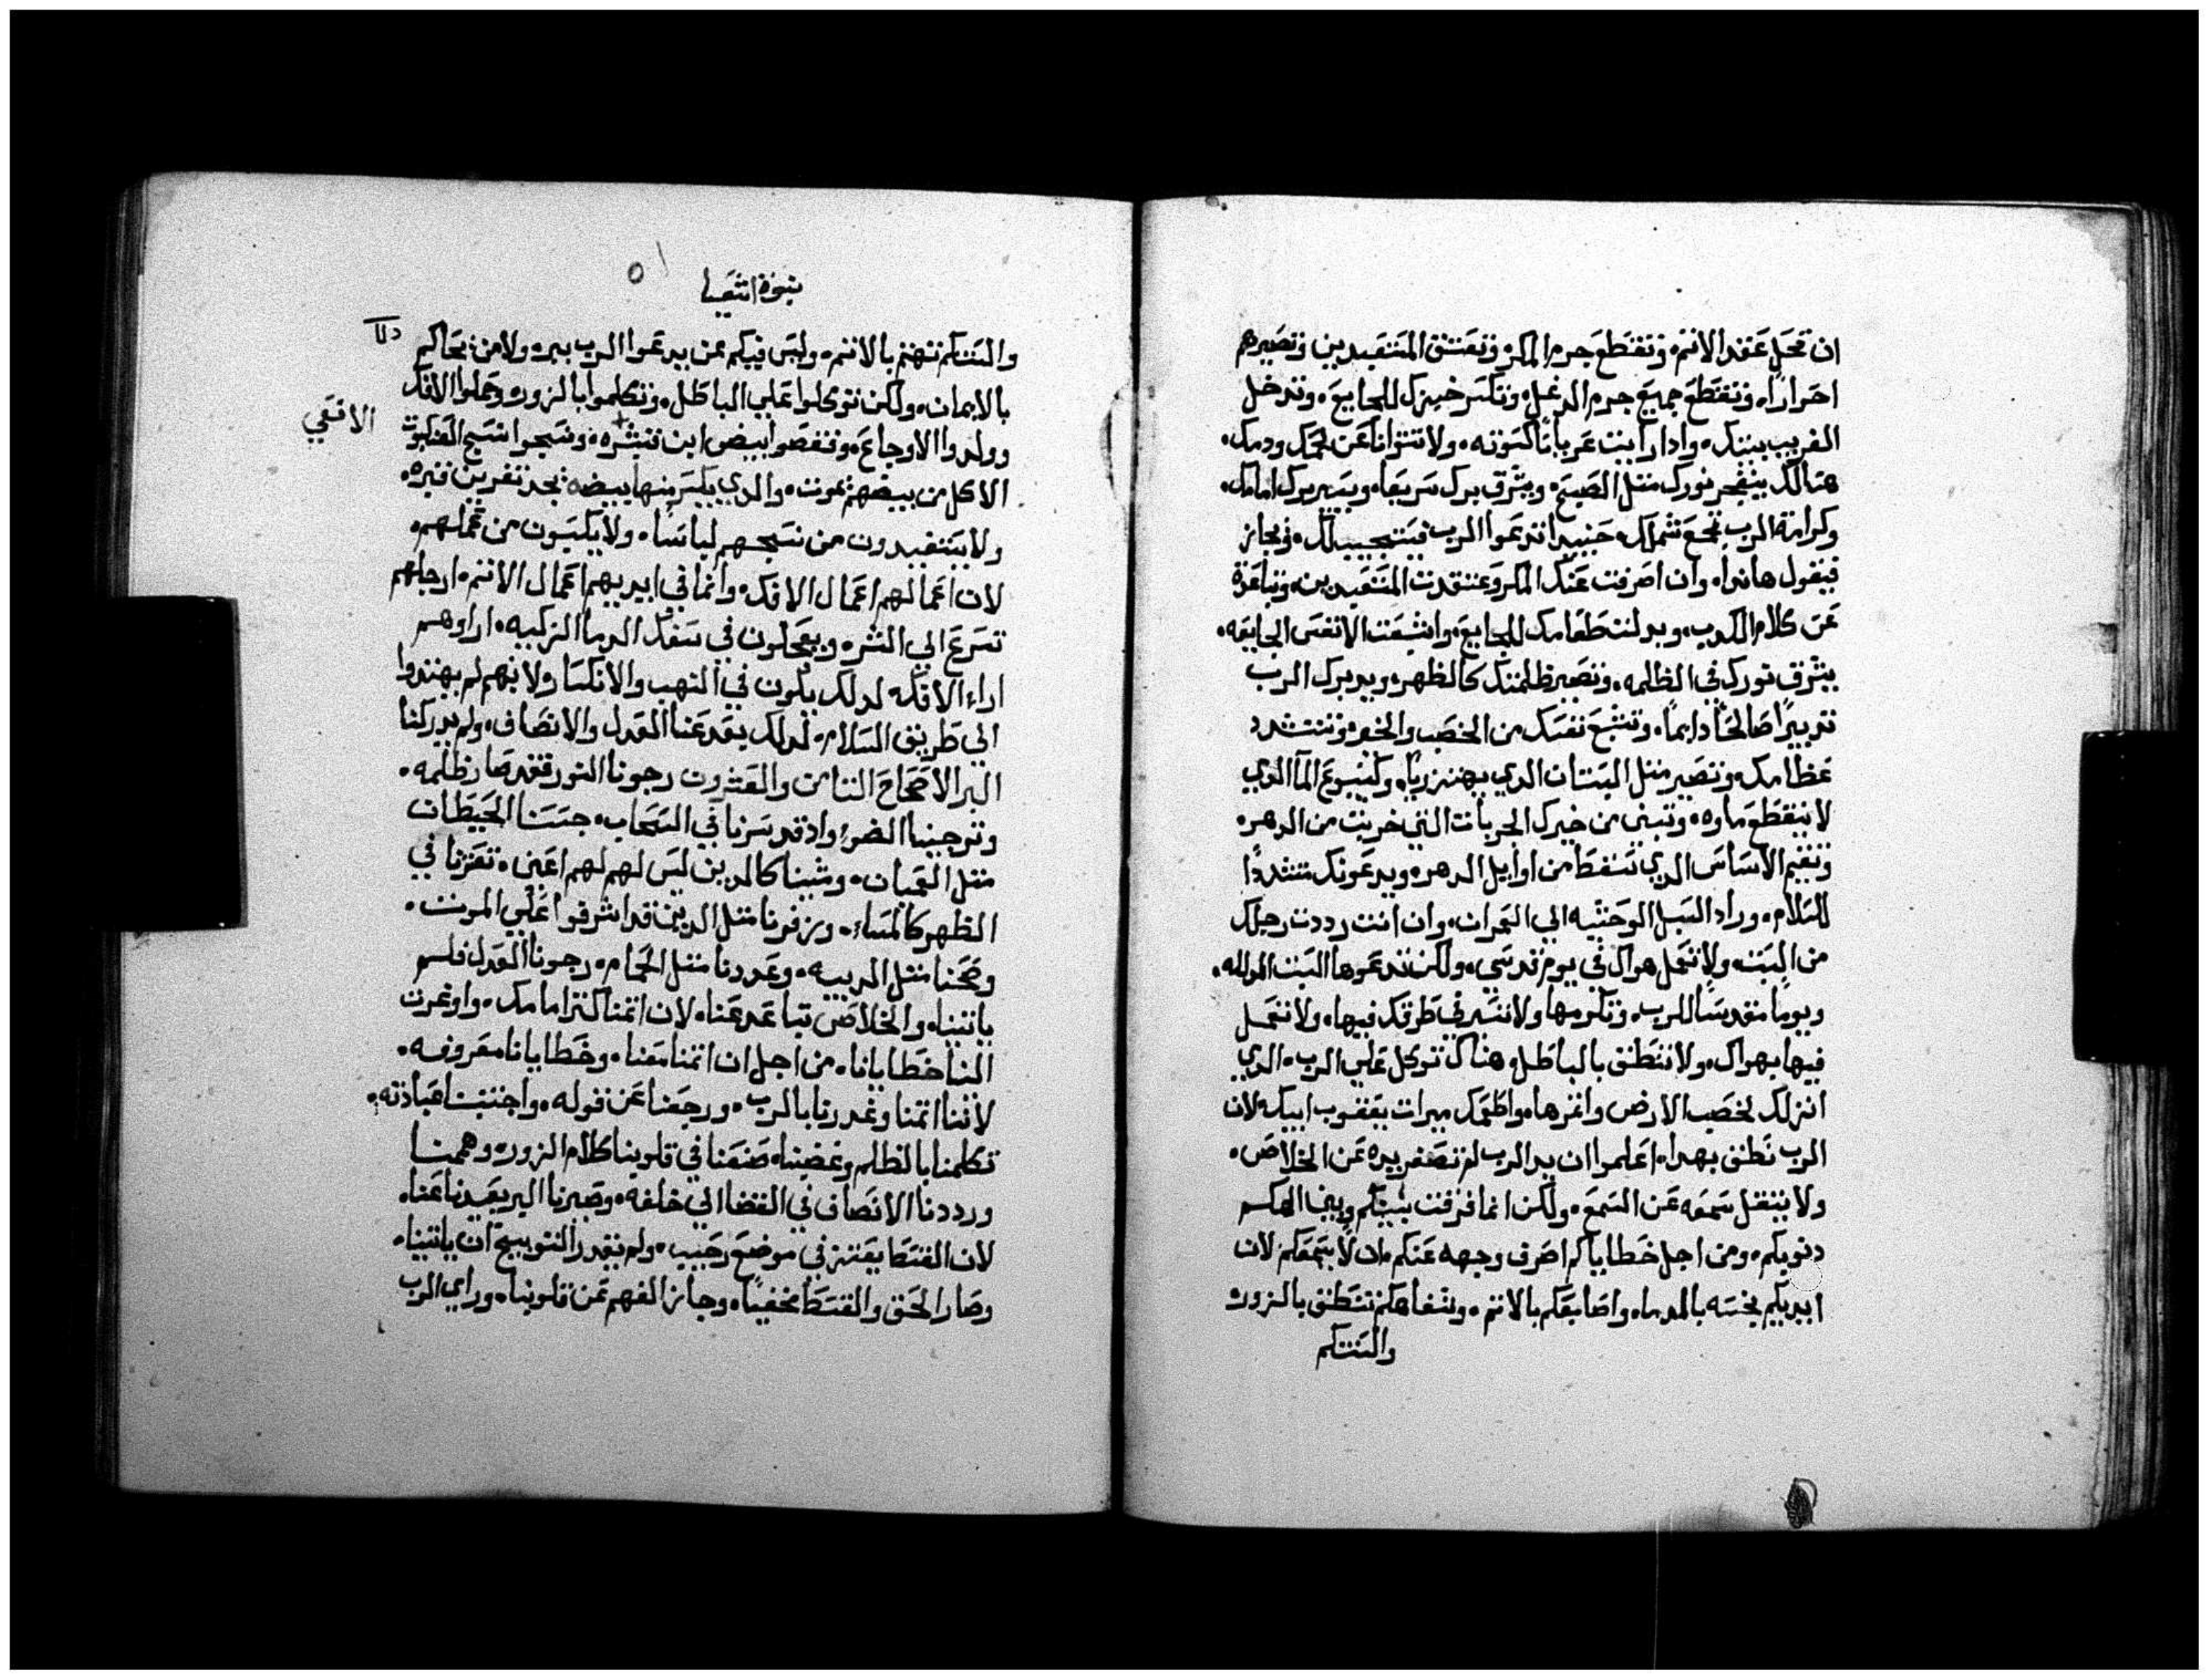 ان تحل عقد الاثم وتقطع جرم المكر وتعتق المتنقيدين وتصيرهم
احراراً وتقطع جميع جرم الدغل وتكسر خبزك للجايع وتدخل
الغريب بيتك وادا رايت عرياناً كسوته ولا تتوانا عن لحمك ودمك
هنالك ينفجر نورك مثل الصبح ويشرق برك سريعا ويسير برك امامك
وكرامة الرب تجمع شملك حينيد اتدعوا الرب فيستجيب لك وتجاز
فيقول هاندا وان اصرفت عنك المكر وعتقت المتقيدين وتباعدة
عن كلام الكدب وبدلت طعامك للجايع واشبعت الانفس الجايعه
يشرق نورك في الظلمه وتصير ظلمتك كالظهر ويدبرك الرب
تدبيراً صالحاً دايماً وتشبع نفسك من الخصب والخير وتتشدد
عظامك وتصير مثل البستان الدي يهتز ريا وكينبوع الما الدي
لا ينقطع ماوه وتبنى من خيرك الخربات التي خربت من الدهر
وتقيم الاساس الدي تسقط من اوايل الدهر ويدعونك مشدداً
للسلام وراد السبل الوحشيه الي العمران وان انت رددت رجلك
من البت ولا تعمل هواك في يوم قدسي ولكن تدعوها البت المدلله
ويوماً مقدساً للرب وتكرمها ولا تسير في طرقك فيها ولا تعمل
فيها بهواك ولا تنطق بالباطل هناك توكل علي الرب الدي
انزلك لخصب الارض واغزها واطعمك ميرات يعقوب ابيك لان
الرب نطق بهدا اعلموا ان يد الرب لم تصغر يده عن الخلاص
ولا يثقل سمعه عن السمع ولكن انما فرقت بينكم وبين الهكم
دنوبكم ومن اجل خطاياكم اصرف وجهه عنكم ان لا يسمعكم لان
ايديكم نجسه بالدما واصابعكم بالاثم وشفاهكم تنطق بالزور
والسنتكم
نبوة اشعيا
والسنتكم تهتم بالاثم وليس فيكم من يدعوا الرب ببر ولا من يحاكم
بالايمان ولكن توكلوا علي الباطل وتكلموا بالزور وحملوا الافك
وولدوا الاوجاع وفقصوا بيض ابن تنشره ونسجوا نسج العنكبوت
الافعي
الاكل من بيضهم يموت والدي يكسر منها بيضه يجد تفرين فيره
ولا يستفيدون من نسجهم لباسا ولا يكتسون من عملهم
لان اعمالهم اعمال الافك وانما في ايديهم اعمال الاثم ارجلهم
تسرع الي الشر ويعجلون في سفك الدما الزكيه اراوهم
اراء الافك لدلك يكون في النهب والانكسار ولانهم لم يهتدوا
الي طريق السلام لدلك بعد عنا العدل والانصاف ولم يدركنا
البر الاصحاح التامن والعشرون رجونا النور فقد صار ظلمه
وترجينا الضو واذ قد سرنا في السحاب جسسنا الحيطان
مثل العميان ومشينا كالدين ليس لهم لهم اعين تعثرنا في
الظهر كالمساء وزفرنا مثل الدين قد اشرفوا علي الموت
وضحنا مثل الدبيه وعددنا مثل الحمام رجونا العدل فلم
ياتينا والخلاص تباعد عنا لان اتمنا كثر امامك واوغرت
النا خطايانا من اجل ان اتمنا معنا وخطايانا معروفه
لاننا اتمنا وغدرنا بالرب ورجعنا عن قوله واجتنبنا عبادته
تكلمنا بالظلم وغضبنا صنعنا في قلوبنا كلام الزور وهممنا
ورددنا الانصاف في القضا الي خلفه وصيرنا البر بعيدنا عنا
لان القسط يعتر في موضع رحيب ولم يقدر التوبيخ ان ياتينا
وصار الحق والقسط مخفياً وجاز الفهم عن قلوبنا وراي الرب